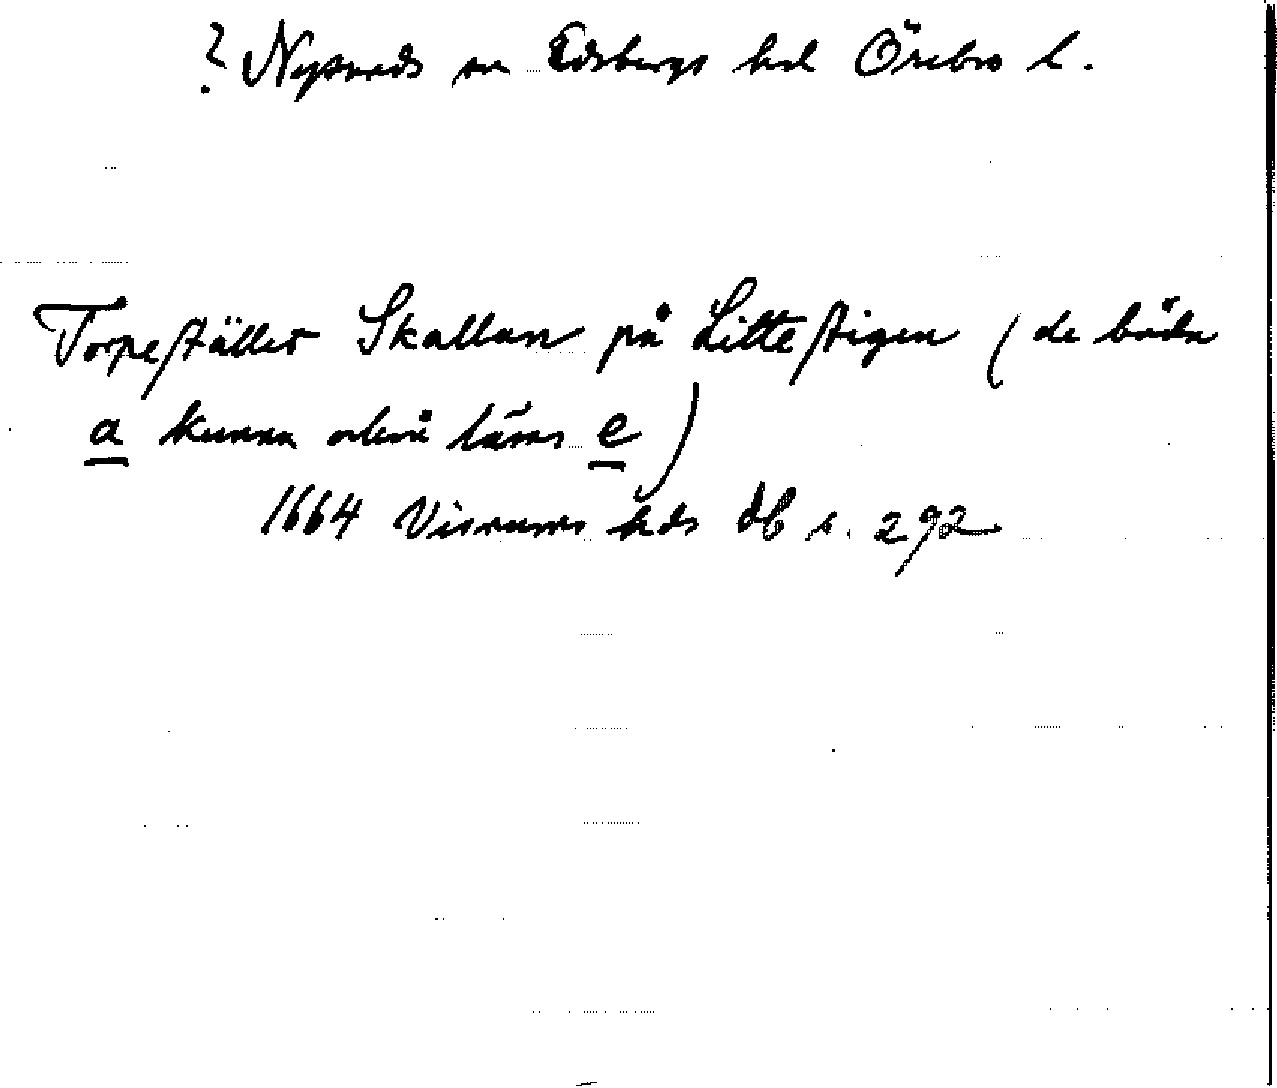 ? Nysunds sn Edsbergs hd Örebro l.
Torpestället Skallan på Littestigen (de båda
a kunna också läsas e)
1664 Visnums hds db s. 292